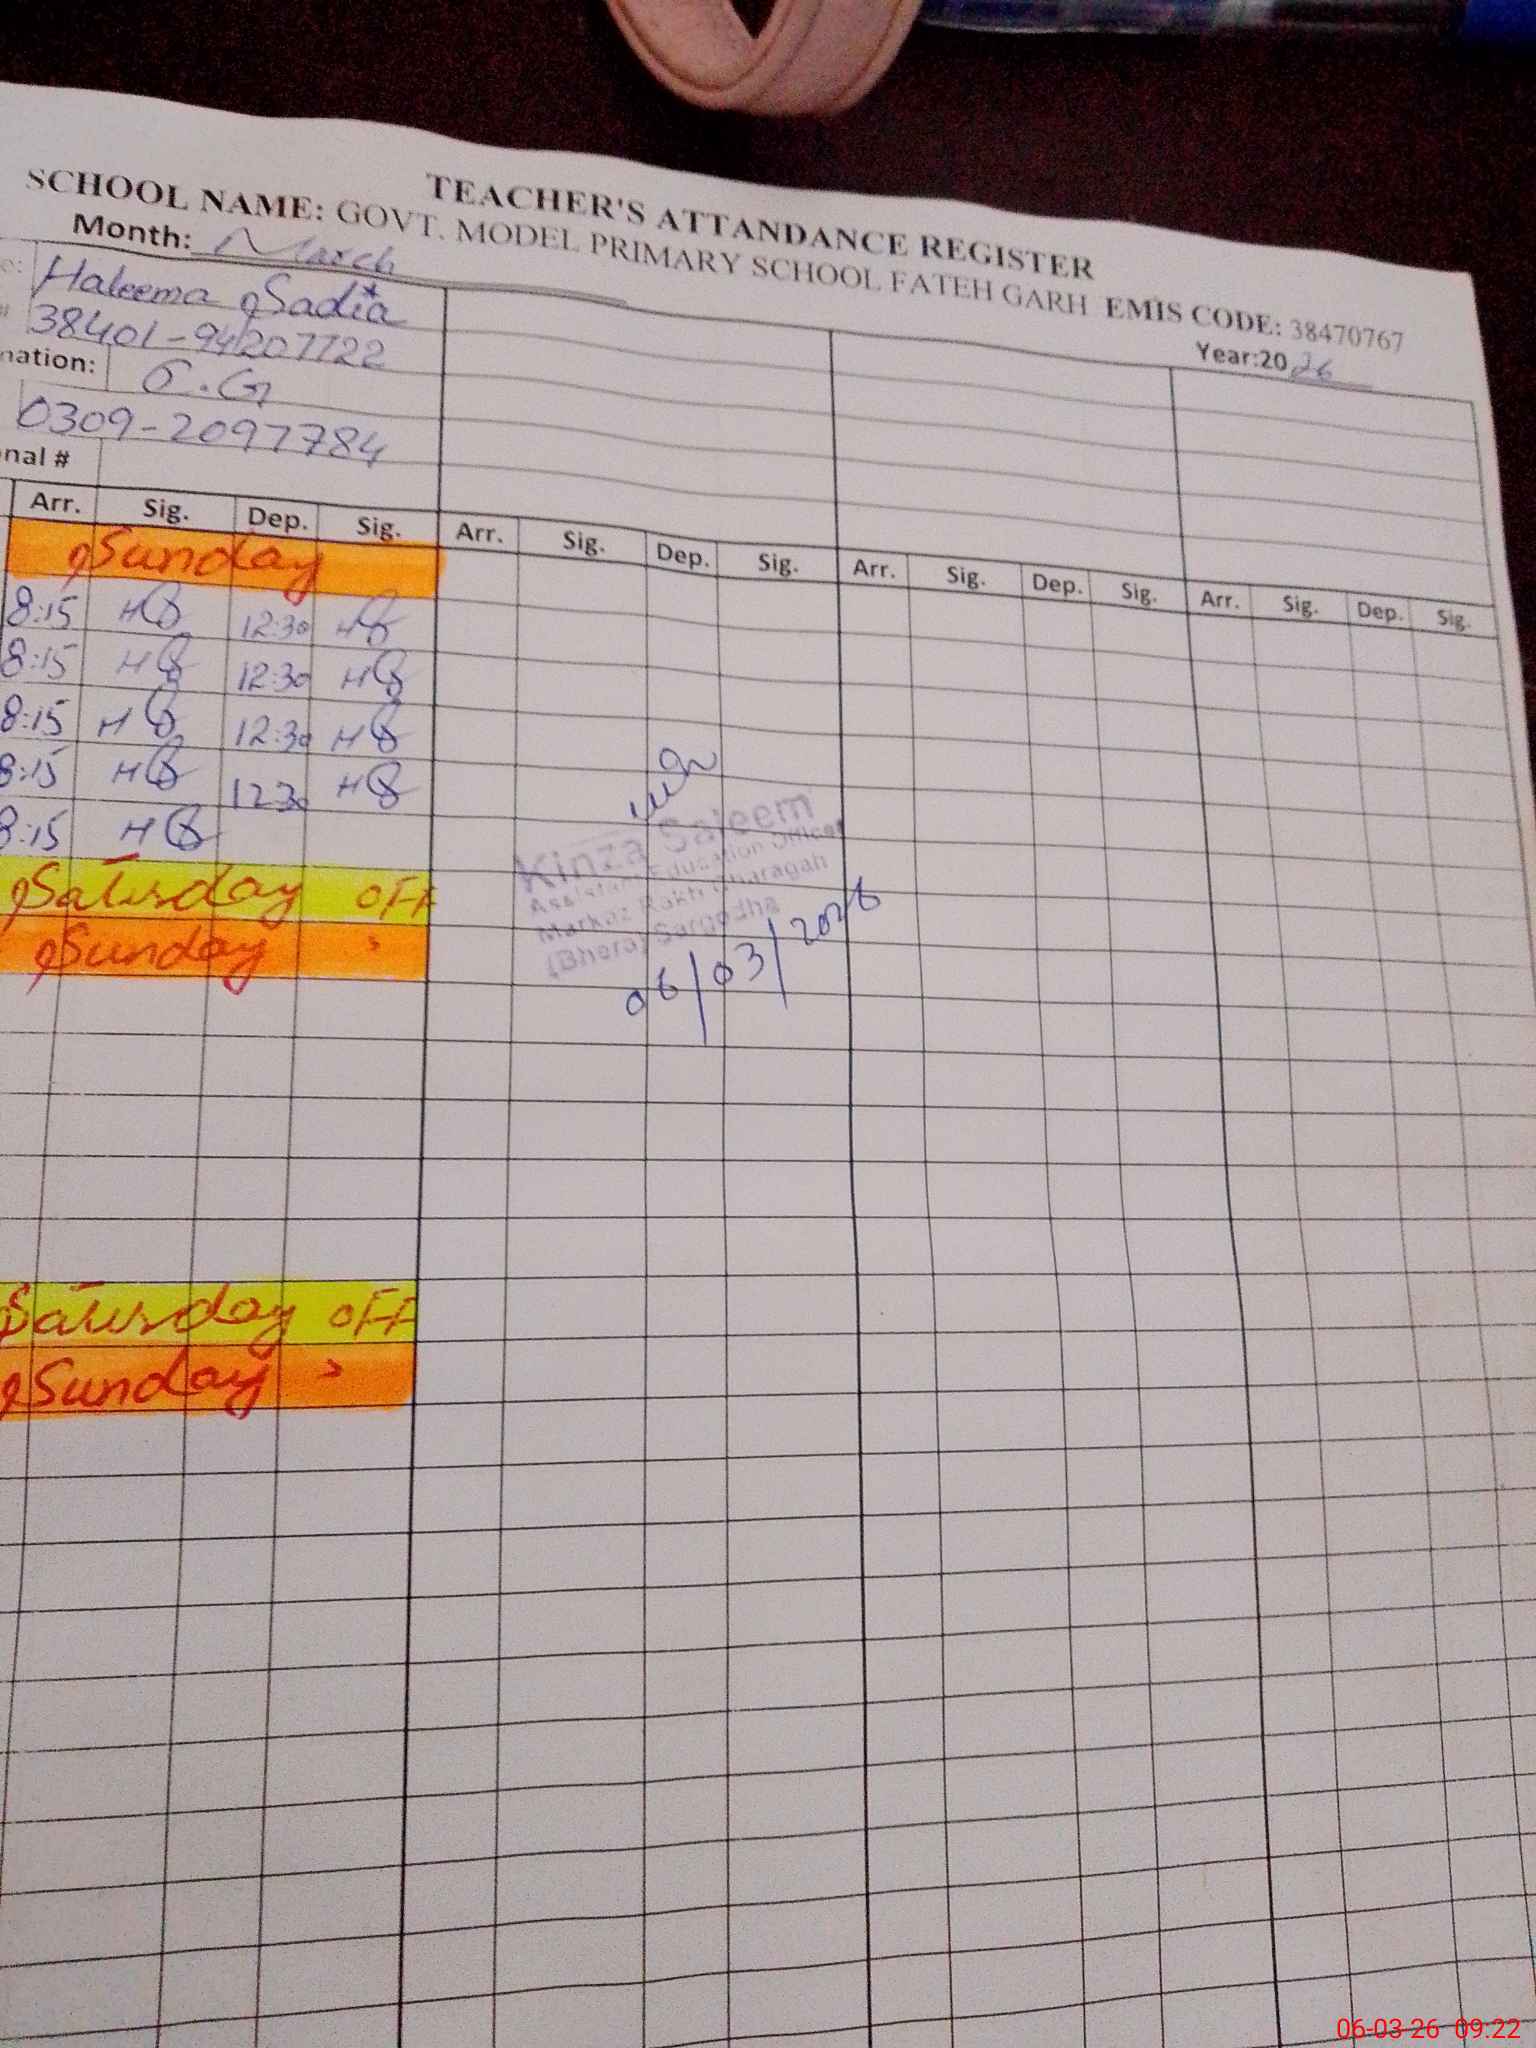 TEACHER'S ATTANDANCE REGISTER
SCHOOL NAME: GOVT. MODEL PRIMARY SCHOOL FATEH GARH EMIS CODE: 38470767
Month: March Year:2026
Haleema Sadia
38401-94207722
nation:
0309-2097784
nal #
Arr. Sig. Dep. Sig. Arr. Sig. Dep. Sig. Arr. Sig. Dep. Sig. Arr. Sig. Dep. Sig.
Sunday
8:15 HS 12:30 HS
8:15 HS 12:30 HS
8:15 HS 12:30 HS
8:15 HS 1230 HS
8:15 HS
Saturday OFF
Sunday
Kinza Saleem
Assistant Education Officer
Markaz Rakh Charagah
(Bhera) Sargodha
06/03/2026
Saturday OFF
Sunday
06-03-26 09:22